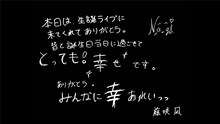 本日は、生誕ライブに
来てくれてありがとう。
皆と誕生日当日に過ごせて
とっても！幸せです。
ありがとう。
みんなに幸あれいっっ